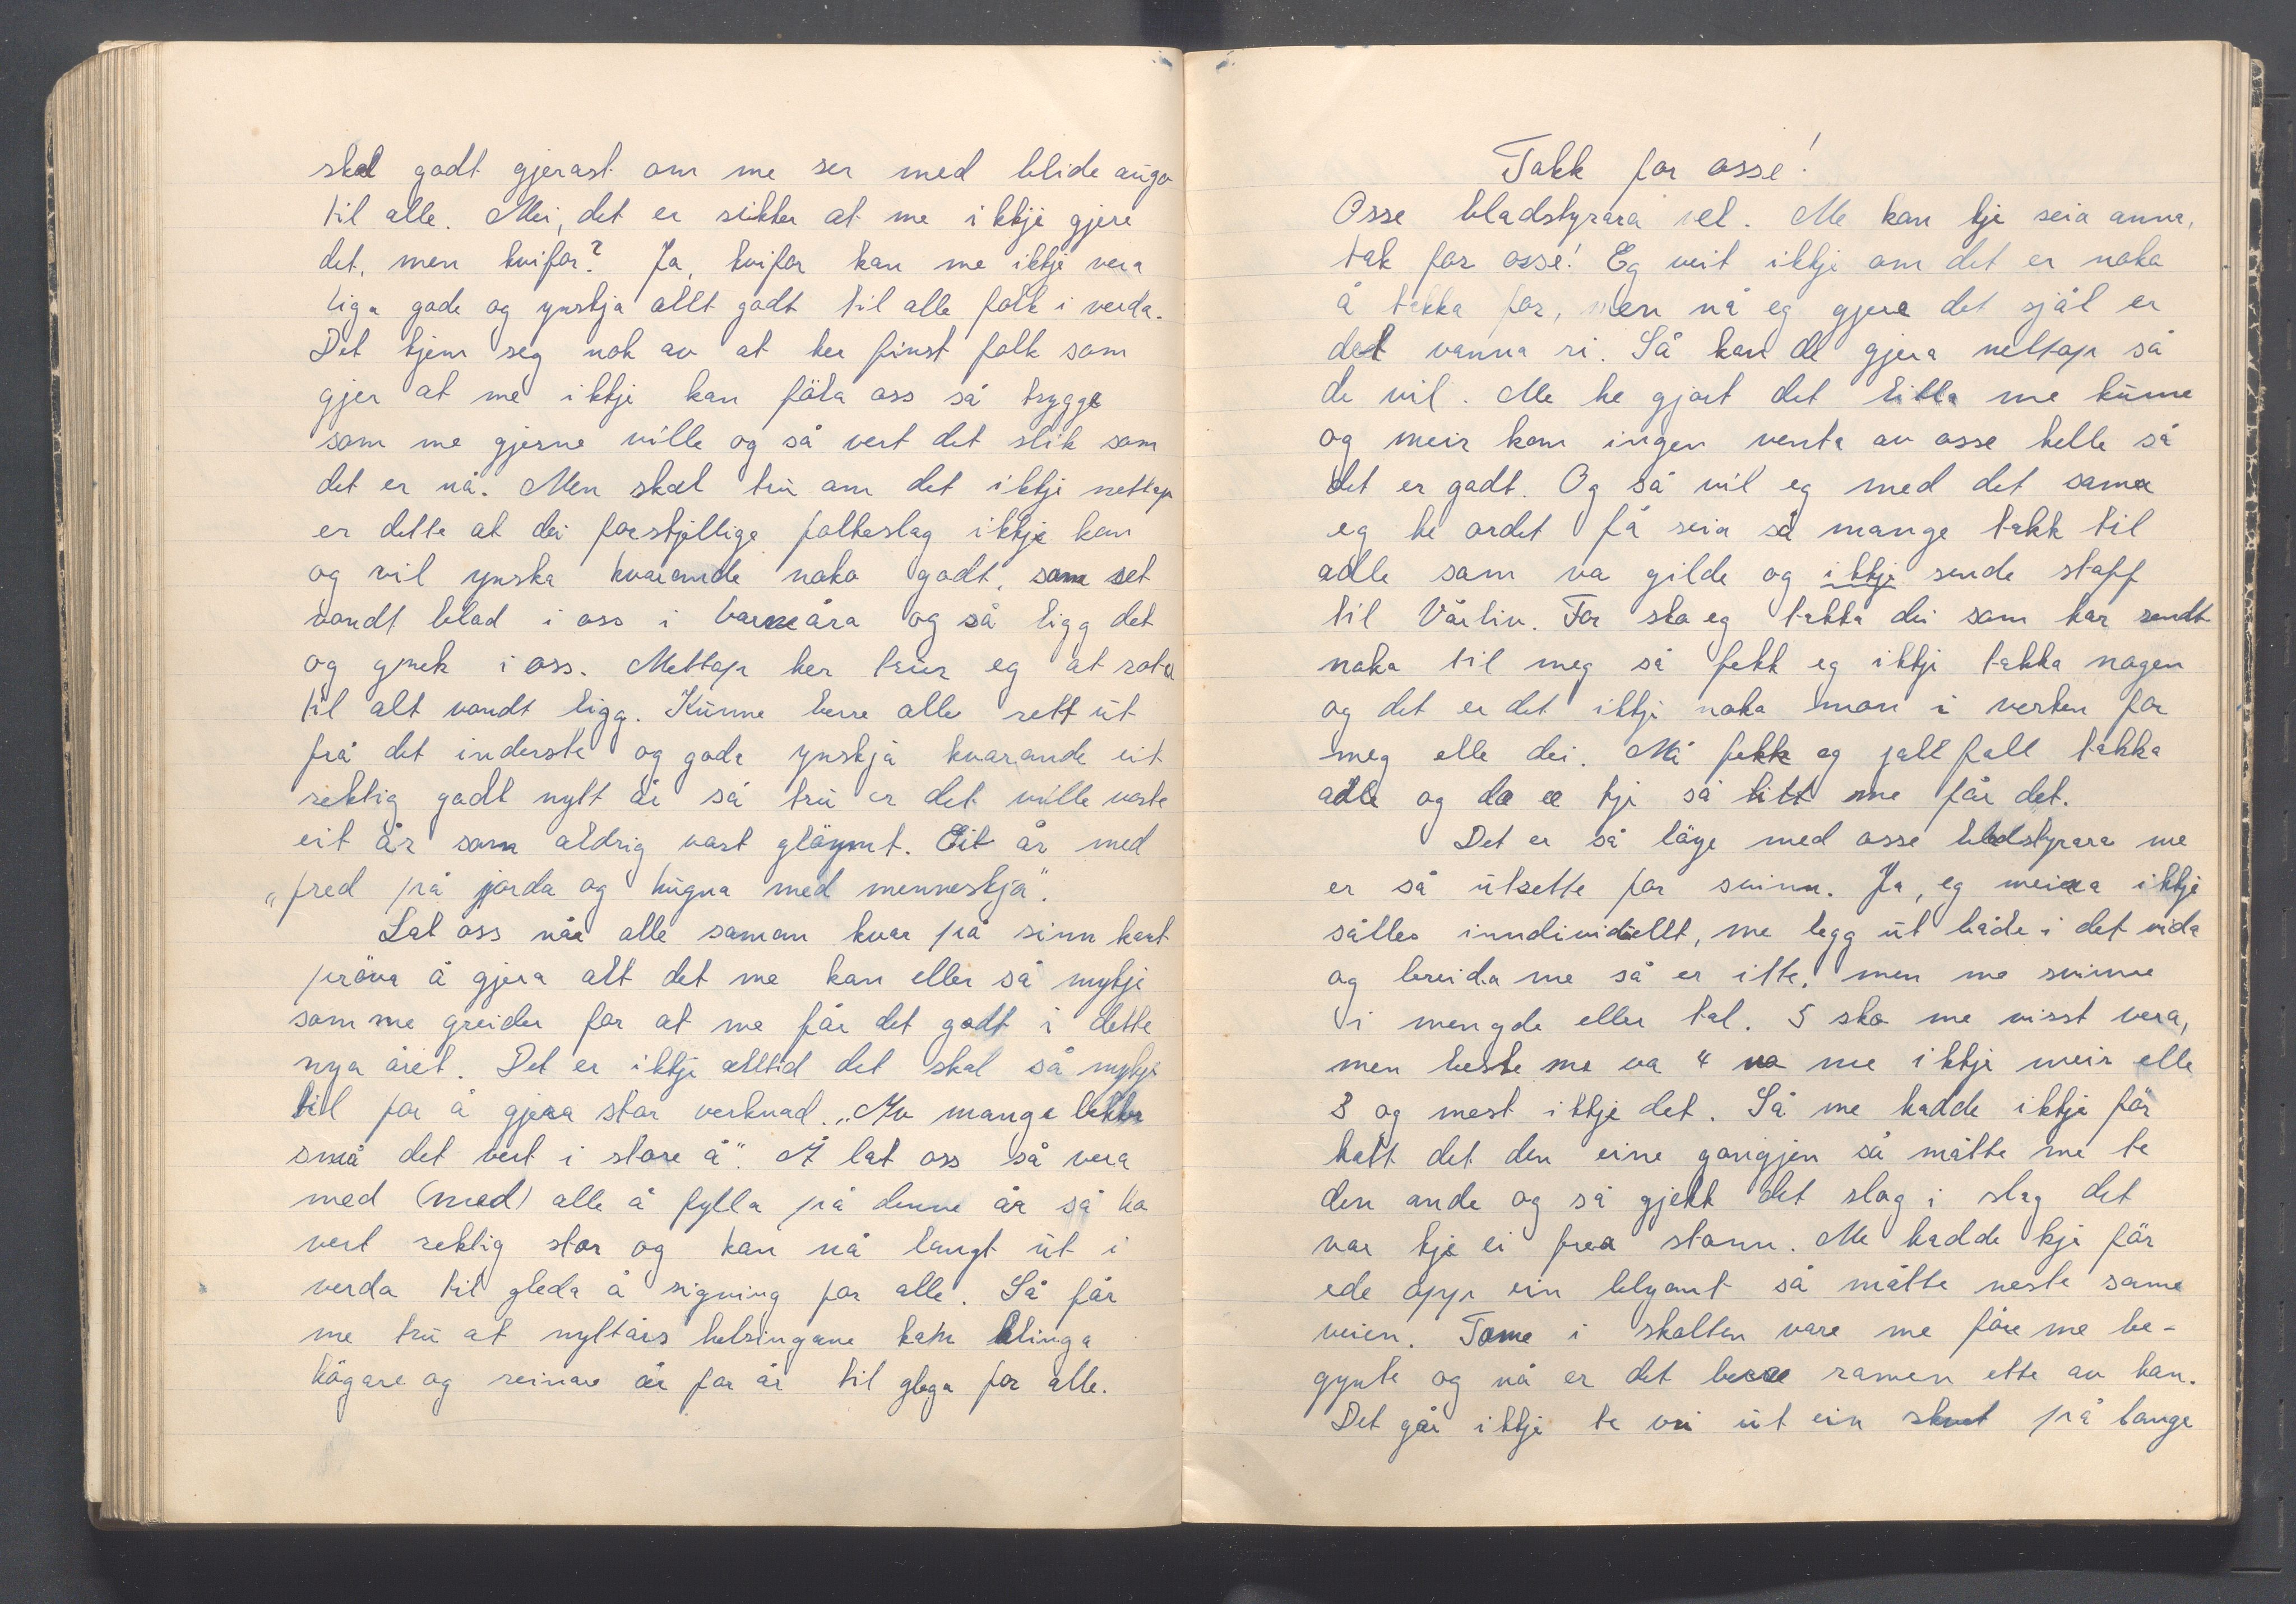 skal godt gjerast om me ser med blide augo
til alle. Nei, det er sikker at me ikkje gjere
det, men kvifor? Ja, kvifor kan me ikkje vera
liga gode og ynskja allt godt til alle folk i verda.
Det kjem seg nok av at her finst folk som
gjer at me ikkje kan föla oss så trygge
som me gjerne ville og så vert det slik som
det er nå. Men skal tru om det ikkje nettop
er dette at dei forskjellige folkeslag ikkje kan
og vil ynska kvarande noko godt, som set
vondt blod i oss i barneåra og så ligg det
og gnek i oss. Nettop her truer eg at rota
til alt vondt ligg. Kunne berre alle rett ut
frå det inderste og gode ynskja kvarande eit
rektig godt nytt år så tru er det ville vorte
eit år som aldrig vart gløymt. Eit år med
"fred på jorda og hugna med menneskja".
Lat oss når alle saman kvar på sinn kant
pröva å gjera alt det me kan eller så mykje
som me greider for at me får det godt i dette
nya året. Det er ikkje alltid det skal så mykje
til for å gjera stor verknad. "Av mange bekker
små det vert i store å". Å lat oss så vera
med (med) alle å fylla på denne år så ho
vert rektig stor og kan nå langt ut i
verda til gleda å signing for alle. Så får
me tru at nyttårs helsingane kan klinga
högare og reinare år for år til glega for alle.
Takk for osse!
Osse bladstyrara vel. Me kan kje seia anna,
tak for osse! Eg veit ikkje om det er noka
å takka for, men nå eg gjera det sjål er
det vanna ri. Så kan de gjera nettop så
de vil. Me he gjort det litla me kunne
og meir kan ingen venta av osse helle så
det er godt. Og så vil eg med det sama
eg he ordet få seia så mange takk til
adle som va gilde og ikkje sende stoff
til Vårliv. For sko eg takka dei som har sendt
noka til meg så fekk eg ikkje takka nogen
og det er det ikkje noka mon i verken for
meg elle dei. Nå fekk eg jall fall takka
adle og da e kje så litt me får det.
Det er så löge med osse bladstyrara me
er så utsette for svinn. Ja, eg meina ikkje
sålles inndividiellt, me legg ut både i det vida
og breida me så er itte, men me svinne
i mengde eller tal. 5 sko me visst vera,
men beste me va 4 va me ikkje meir elle
3 og mest ikkje det. Så me hadde ikkje för
hatt det den eine gongjen så måtte me te
den ande og så gjekk det slag i slag det
var kje ei frea stonn. Me hadde kje för
ede opp ein blyant så måtte neste same
veien. Tome i skolten vare me före me be-
gynte og nå er det berre ramen ette av han.
Det går ikkje te vri ut ein skvet på lange